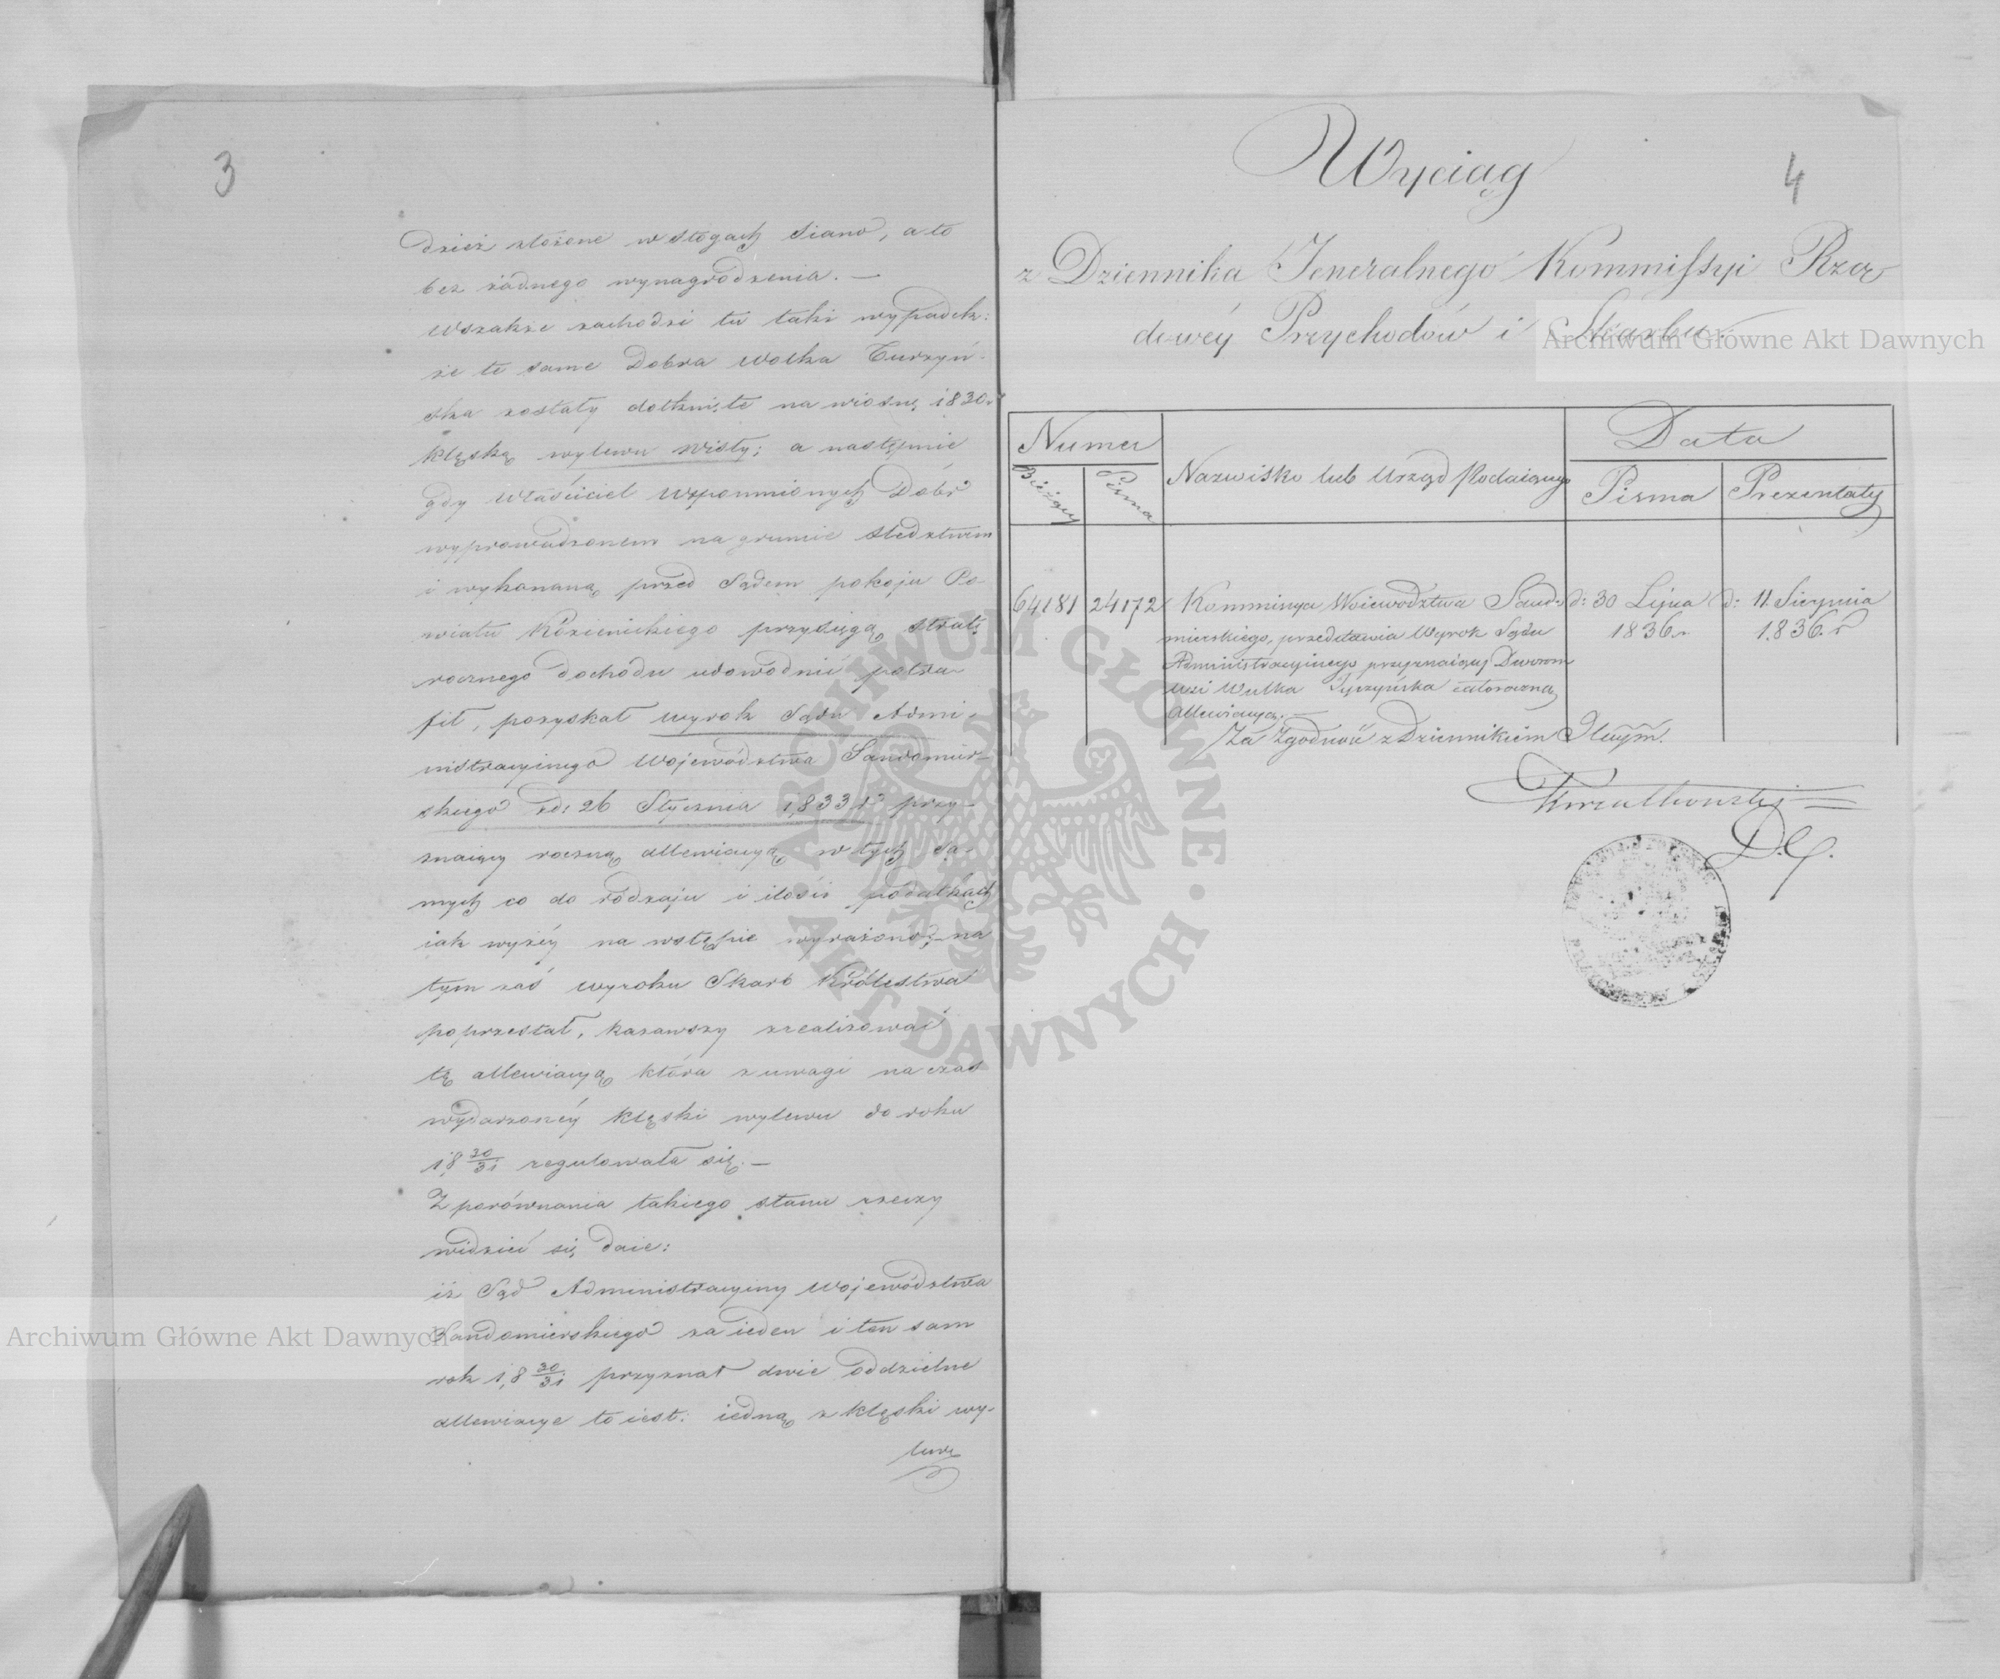 3
dzież złożone w stogach siano, a to
bez żadnego wynagrodzenia. —
Wszakże zachodzi tu taki wypadek:
że te same Dobra Wolka Turzyń-
ska zostały dotknięte na wiosnę 1830 r
klęską wylewu Wisły; a następnie
gdy Właściciel wspomnionych Dóbr
wyprowadzonem na gruncie śledztwem
i wykonaną przed Sądem pokoju Po-
wiatu Kozienickiego przysięgą stratę
rocznego dochodu udowodnić potra-
fił, pozyskał wyrok Sądu Admi-
nistracyinego Województwa Sandomir-
skiego z d: 26 Stycznia 1833 r przy-
znaiący roczną allewiacyą w tych sa-
mych co do rodzaju i ilości podatkach
iak wyżéy na wstępie wyrażono, na
tym zaś wyroku Skarb Królestwa
poprzestał, kazawszy zrealizować
tę allewiacyą która z uwagi na czas
wydarzonéy klęski wylewu do roku
18 30/31 regulowała się. —
Z porównania takiego stanu rzeczy
widzieć się daie:
iż Sąd Administracyiny Województwa
Sandomierskiego za ieden i ten sam
rok 18 30/31 przyznał dwie oddzielne
allewiacye to iest: iedną z klęski wy-
lewu
4
Wyciąg
z Dziennika Jeneralnego Kommissyi Rzą
dowéy Przychodów i Skarbu.
Numer
Bieżący
Pisma
Nazwisko lub Urząd Podaiącego
Data
Pisma
Prezentaty
64181
24172
Kommissya Województwa Sando
mierskiego, przedstawia Wyrok Sądu
Administracyinego przyznaiący Dworowi
wsi Wulka Tyrzyńska całoroczną
allewiacyą. —
d: 30 Lipca
1836 r.
d: 11 Sierpnia
1836. r
Za Zgodność z Dziennikiem
D.G.
Archiwum Główne Akt Dawnych
Archiwum Główne Akt Dawnych
ARCHIWUM GŁÓWNE · AKT DAWNYCH ·